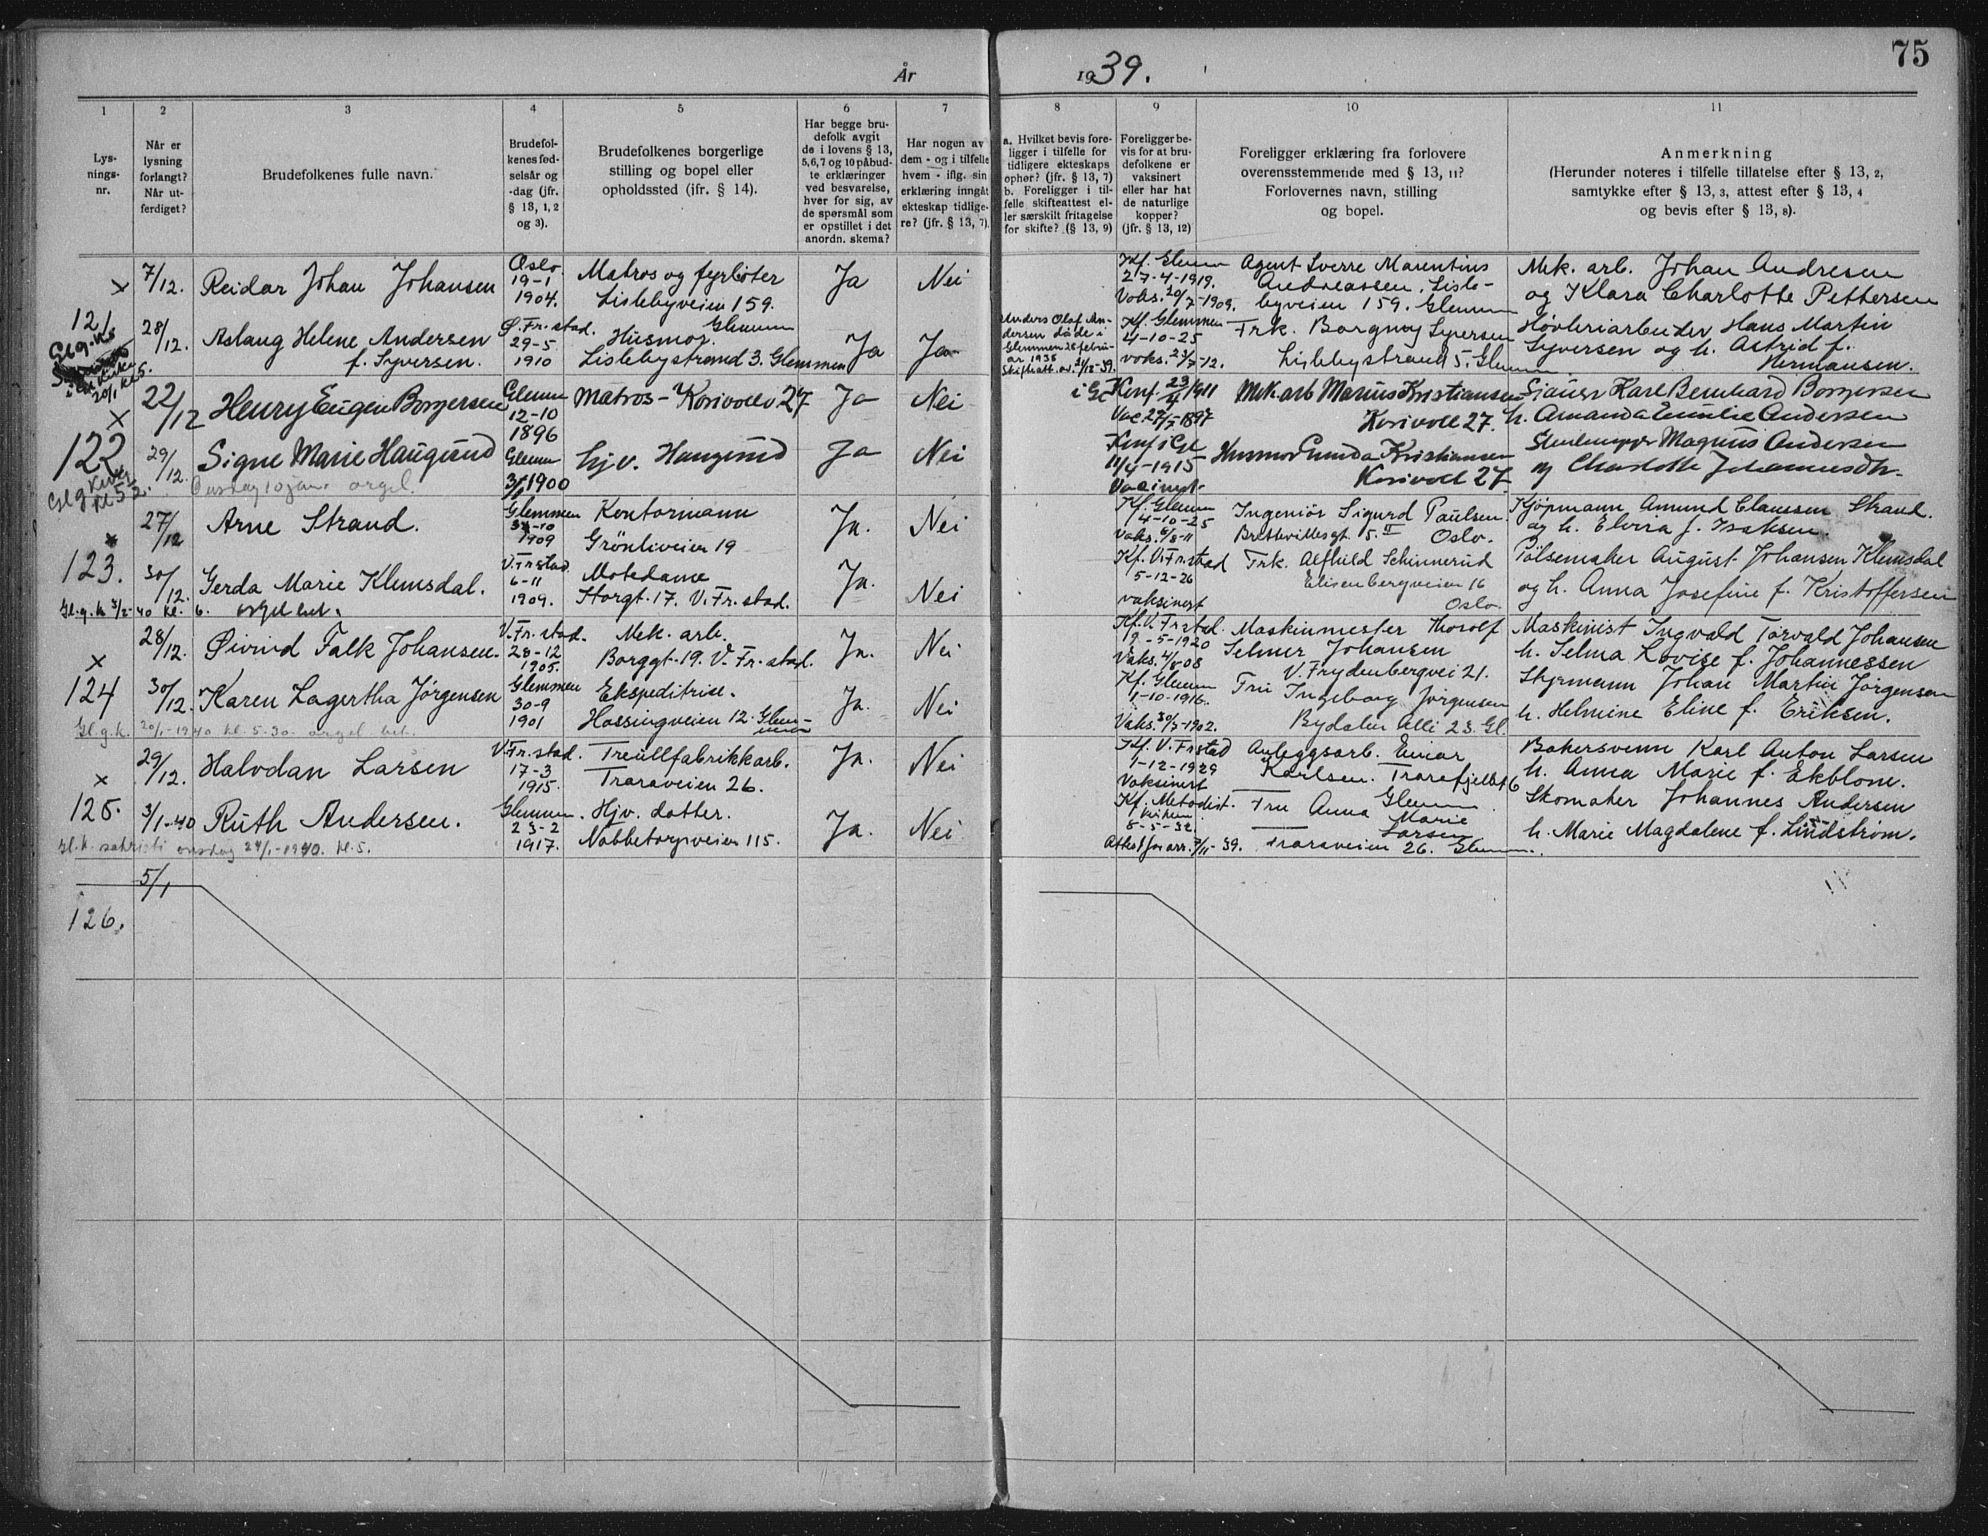 75
År 1939.
1 2 3 4 5 6 7 8 9 10 11
Lys-
nings-
nr.
Når er
lysning
forlangt?
Når ut-
ferdiget?
Brudefolkenes fulle navn.
Brudefol-
kenes fød-
selsår og
-dag (jfr.
§ 13, 1, 2
og 3).
Brudefolkenes borgerlige
stilling og bopel eller
opholdssted (ifr. § 14).
Har begge bru-
defolk avgit
de i lovens § 13,
5, 6, 7 og 10 påbud-
te erklæringer
ved besvarelse,
hver for sig, av
de spørsmål som
er opstillet i det
anordn. skema?
Har nogen av
dem - og i tilfelle
hvem - iflg. sin
erklæring inngåt
ekteskap tidlige-
re? (jfr. § 13, 7).
a. Hvilket bevis fore-
ligger i tilfelle for
tidligere ekteskaps
ophør? (§ 13, 7)
b. Foreligger i til-
felle skifteattest el-
ler særskilt fritagelse
for skifte? (§ 13, 9)
Foreligger be-
vis for at bru-
defolkene er
vaksinert
eller har hat
de naturlige
kopper?
(jfr. § 13, 12)
Foreligger erklæring fra forlovere
overensstemmende med § 13, 11?
Forlovernes navn, stilling
og bopel.
Anmerkning
(Herunder noteres i tilfelle tillatelse efter § 13, 2,
samtykke efter § 13, 3, attest efter § 13, 4
og bevis efter § 13, 8).
x
7/12.
Reidar Johan Johansen
Oslo.
19-1
1904.
Matros og fyrbøter
Lislebyveien 159.
Glemmen
Ja
Nei
Kf. Glemm
27-4-1919.
Vaks. 20/7-1909.
Agent Sverre Marentius
Andreassen. Lisle-
byveien 159. Glemm
Mek. arb. Johan Andresen
og Klara Charlotte Pettersen
121
28/12.
Aslaug Helene Andersen
f. Syversen.
Ø. Fr.stad.
29-5
1910
Husmor.
Lislebystrand 3. Glemmen
Ja
Ja
Anders Olaf An-
dersen døde i
Glemmen 28 febru-
ar 1938
Kf. Glemmen
4-10-25
Frk. Borgny Syversen
Lislebystrand 5. Glemm
Høvleriarbeider Hans Martin
Syversen og h. Astrid f.
Hermansen.
Gl.g.k.
20/1 kl. 5.
x
22/12
Henry Eugen Borgersen
Glemm
12-10
1896
Matros - Kosivollv 27
Ja
Nei
i Gl
Konf 23/4 1911
Mek arb Marius Kristiansen
Kosivoll 27.
Sjauer Karl Bernhard Borgersen
h. Amanda Emilie Andersen
122
29/12.
Signe Marie Haugsund
Onsdag 10 jan. orgel.
Glemm
1900
hjv. Haugsund
Ja
Nei
Konf i Gl
11/4-1915
Husmor Gunda Kristiansen
Kosivoll 27
Magnus Andersen
og Charlotte Johannesdtr.
x
27/12
Arne Strand.
Glemmen
1909
Kontormann
Grønliveien 19
Ja.
Nei
Kf. Glemm
4-10-25
Ingeniør Sigurd Paulsen.
5. II Oslo.
Kjøpmann Amund Claussen Strand.
og h. Elvira f. Isaksen
123.
30/12.
Gerda Marie Klemsdal.
V. Fr.stad
6-11
1909.
Motedame
Storgt. 17. V. Fr. stad.
Ja.
Nei
Kf. V. Fr.stad
5-12-26
vaksinert
Frk. Alfhild Schinnerud
Eilsenbergveien 16
Oslo
Pølsemaker August Johansen Klemsdal
og h. Anna Josefine f. Kristoffersen
Gl.g.k. 3/2-40 kl. 6. orgel bet.
x
28/12.
Øivind Falk Johansen.
V. Fr. stad.
28-12
1905.
Mek. arb.
Borggt. 19. V. Fr. stad.
Ja.
Nei
Kf. V. Fr. stad.
9-5-1920
Vaks. 4/8-08
Maskinmester Thorolf
Selmer Johansen
V. Frydenbergvei 21.
Maskinist Ingvald Torvald Johansen
h. Selma Lovise f. Johannessen
124
30/12.
Karen Lagertha Jørgensen
Glemmen
30-9
1901
Ekspeditrise.
Hassingveien 12. Glem-
men
Ja.
Nei
Kf. Glemm
1-10-1916.
Vaks. 30/7-1902.
Fru Ingeborg Jørgensen
Bydalen Allé 23. Gl.
Styrmann Johan Martin Jørgensen
h. Helmine Eline f. Eriksen.
Gl.g.k. 20/1-1940 kl. 5.30. orgel bet.
x
29/12.
Halvdan Larsen
V. Fr. stad.
17-3
1915.
Treullfabrikkarb.
Traraveien 26.
Ja.
Nei
Kf. V. Frstad
1-12-1929
Vaksinert
Anleggsarb. Einar
Karlsen. Trarafjellet 6
Glemm
Bakersvenn Karl Anton Larsen
h. Anna Marie f. Ekblom.
125.
3/1-40
Ruth Andersen.
Glemmen.
23-2
1917.
Hjv. datter.
Nabbetorpveien 115.
Ja.
Nei
Kf. Metodist.
kirken
8-5-32.
Fru Anna Marie
Larsen
Traraveien 26. Glemm.
Skomaker Johannes Andersen
h. Marie Magdalene f. Lindstrøm.
Gl.k. sakristi onsdag 24/1-1940. kl. 5.
5/1
126.